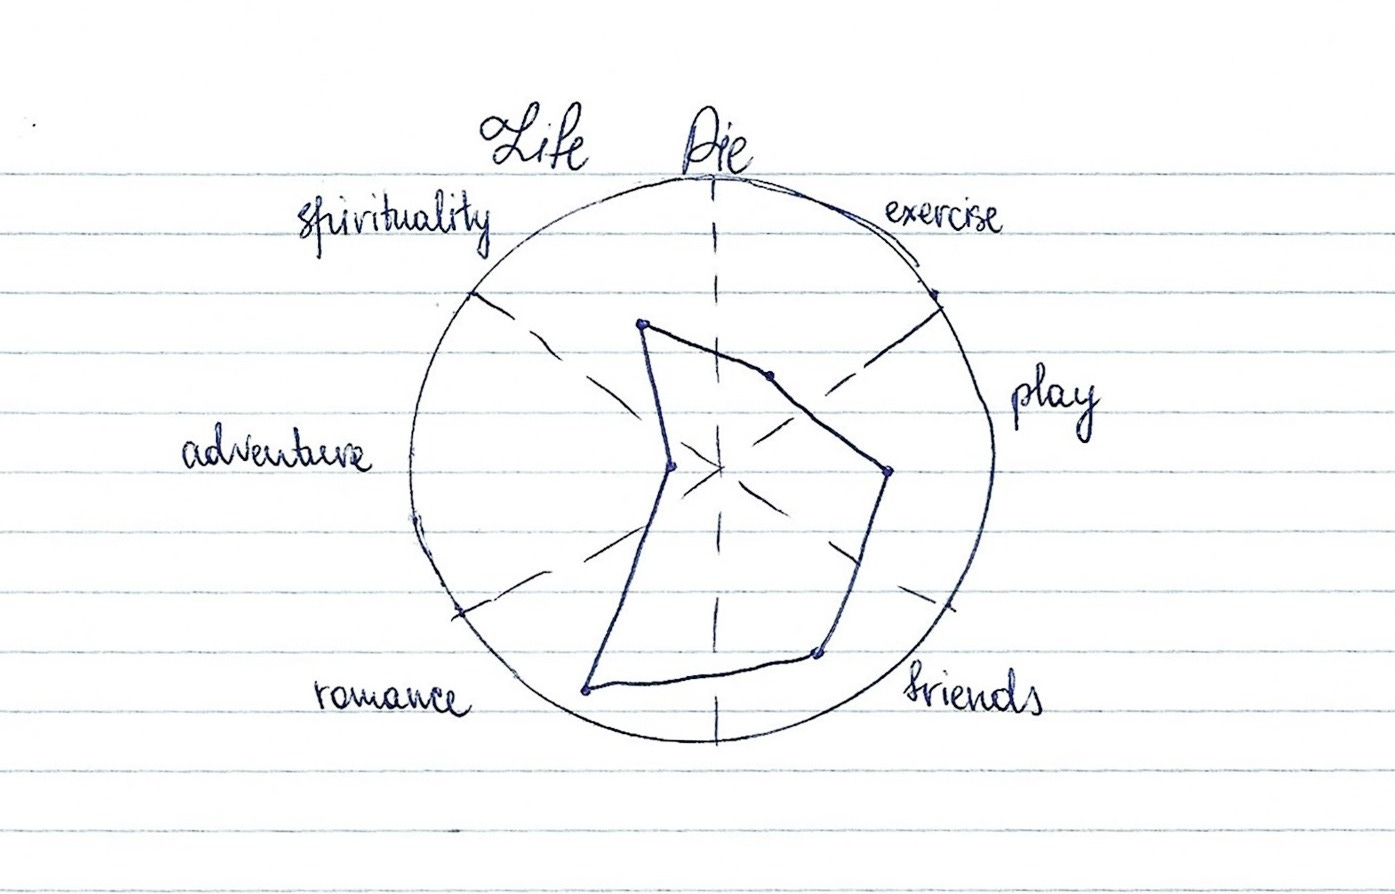 Life Pie
spirituality
exercise
play
adventure
romance
friends